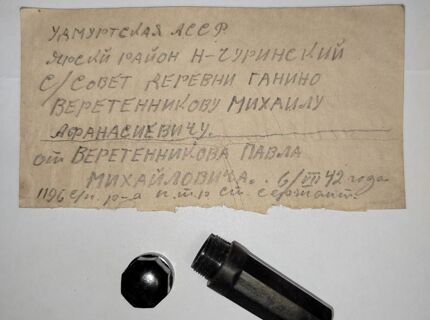 УДМУРТСКАЯ АССР
ЯРСКЙ РАЙОН Н-ЧУРИНСКИЙ
С/СОВЕТ ДЕРЕВНИ ГАНИНО
ВЕРЕТЕННИКОВУ МИХАИЛУ
АФАНАСИЕВИЧУ.
от ВЕРЕТЕННИКОВА ПАВЛА
МИХАЙЛОВИЧА. 6/VII 42 года
1196 с/п. р-а п.т.р ст. сержант.